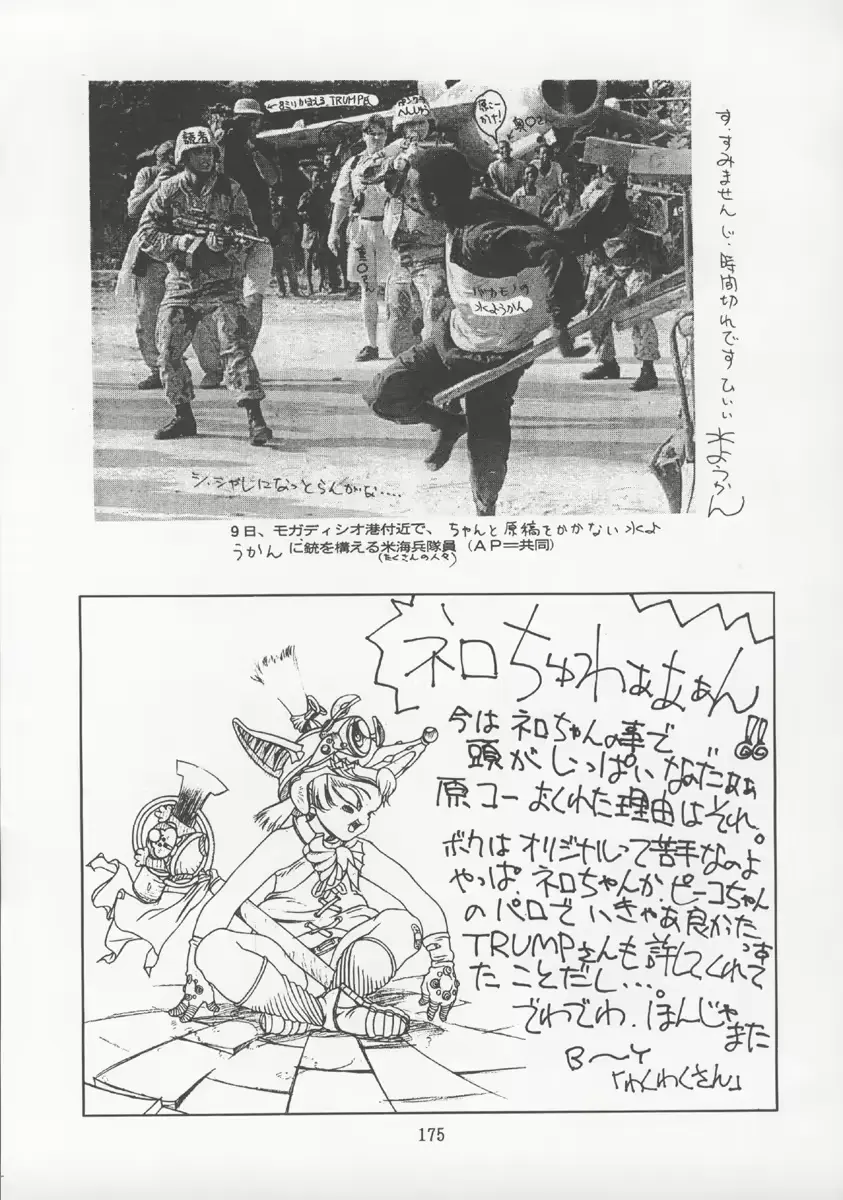 ←8ミリかまえる TRUMP氏
読者
原こー
かけ!
バカモノの
水ようかん
シ、シャレになっとらんがな‥‥
す、すみません じ、時間切れです ひいい 水ようかん
9日、モガディシオ港付近で、ちゃんと原稿をかかない水よ
うかんに銃を構える米海兵隊員(AP=共同)
(たくさんの人々)
ネロちゅわぁあぁん!!
今はネロちゃんの事で
頭がいっぱいなのだぁぁ
原コーよくれた理由はそれ。
ボクはオリジナルって苦手なのよ
やっぱ、ネロちゃんか、ピーコちゃん
のパロでいきゃあ良かったっす
TRUMPさんも許してくれて
たことだし‥‥
でわでわ、ぽんじゃ
また
B〜Y
「わくわくさん」
175